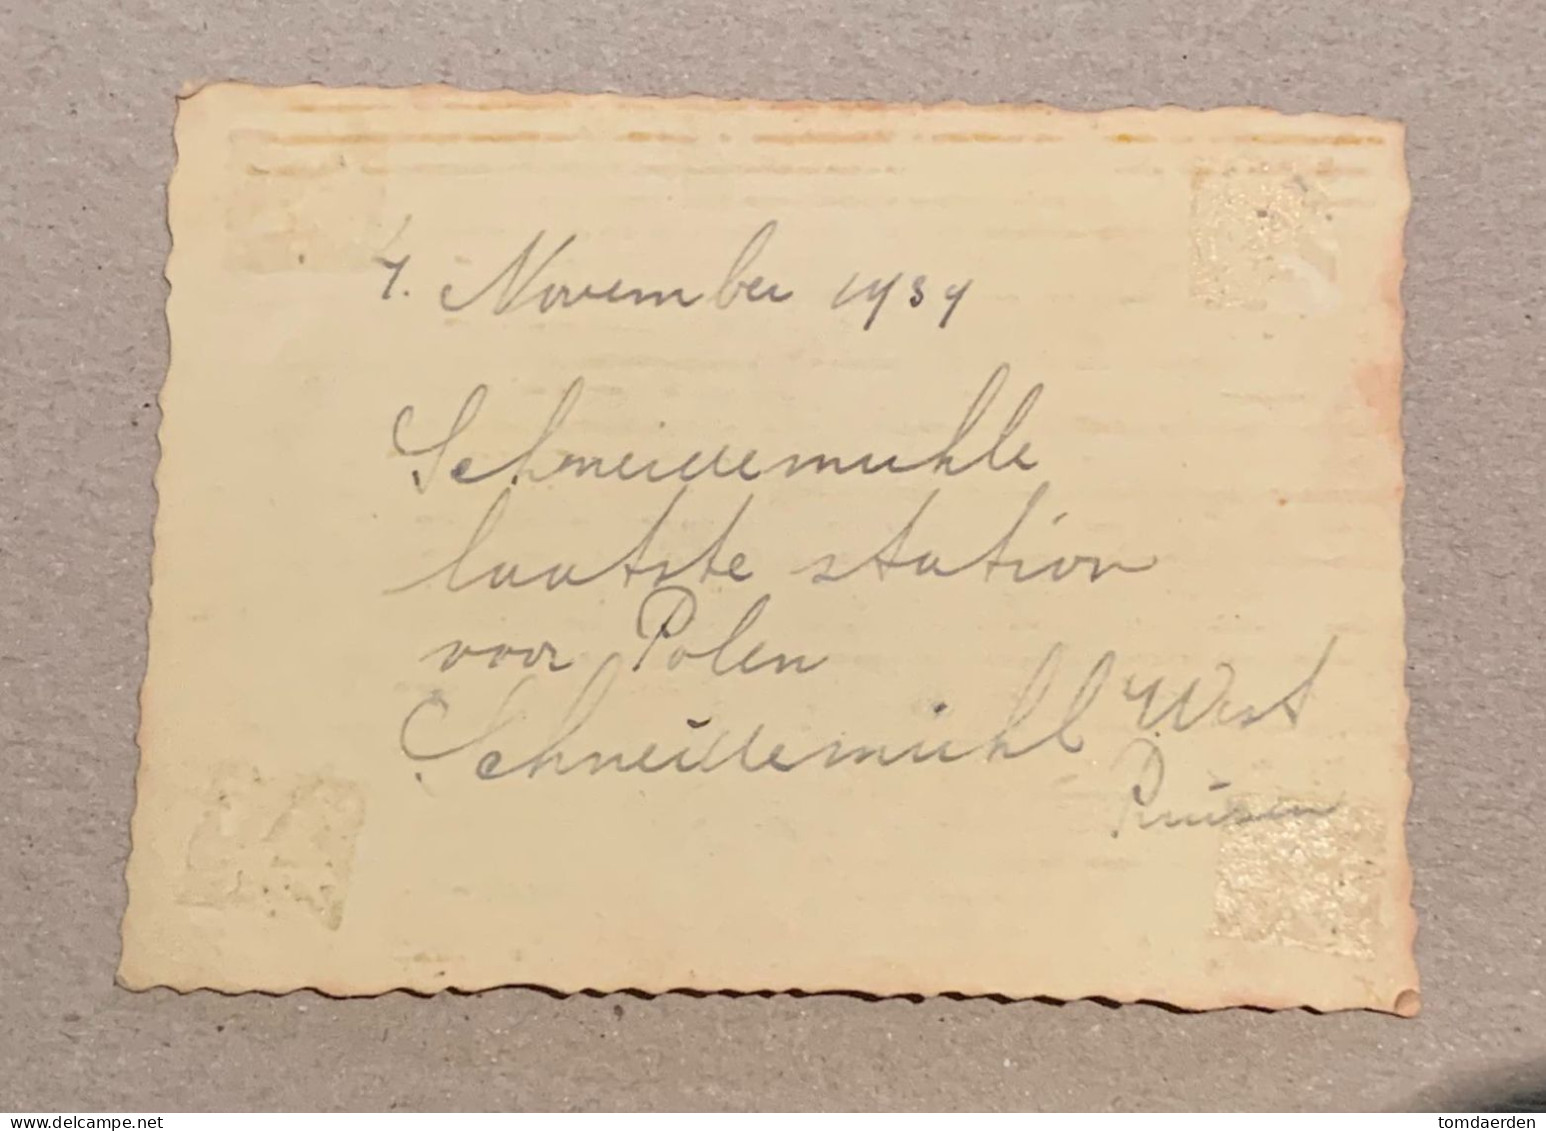 4. November 1939
Schneidemuhle
laatste station
voor Polen
Schneidemühl West
Pruisen
tomdaerden